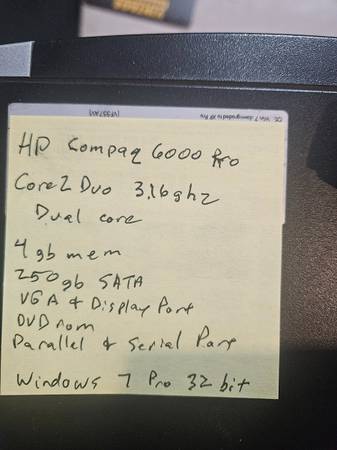 HP Compaq 6000 Pro
Core2 Duo 3.16ghz
Dual core
4gb mem
250gb SATA
VGA & Display Port
DVD rom
Parallel & Serial Port
Windows 7 Pro 32 bit